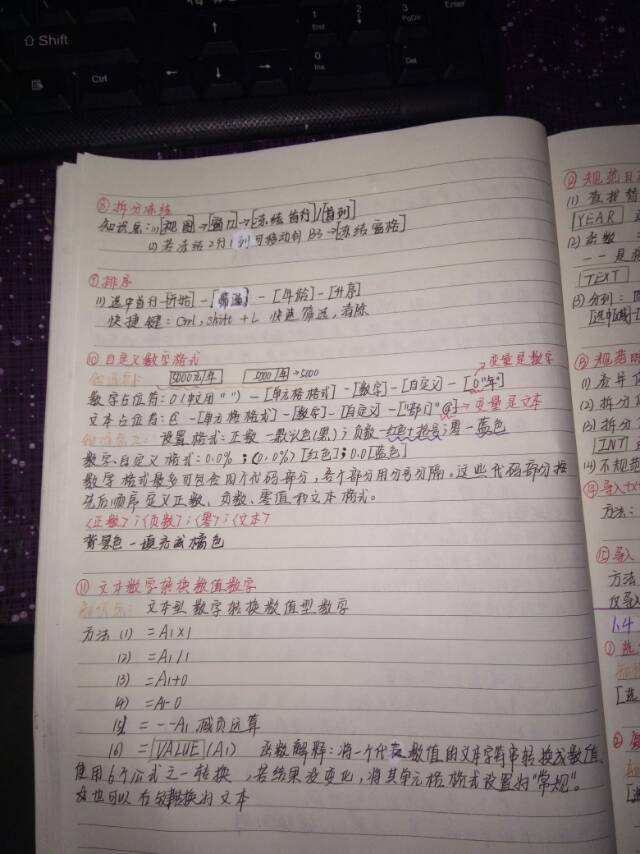 Shift
Ctrl
1
End
2
3
PgDn
Enter
0
Ins
Del
⑧ 拆分冻结
知识点:(1)[视图]→[窗口]→[冻结首行]/[首列]
(2) 若冻结2行1列可移动到B3→[冻结窗格]
⑨ 排序
(1) 选中首行-[开始]-[筛选]-[年龄]-[升序]
快捷键:Ctrl,shift+L 快速筛选,清除
⑩ 自定义数字格式
5000元/年 5000/年→5000 变量是数字
数字占位符:0(中文用" ")-[单元格格式]-[数字]-[自定义]-[0"年"]
文本占位符:@-[单元格格式]-[数字]-[自定义]-["部门"@]→变量是文本
设置格式:正数-默认色(黑);负数-红色+括号;零-蓝色
数字自定义格式:0.0%;(0.0%)[红色];0.0[蓝色]
数字格式最多可包含四个代码部分,各个部分用分号分隔。这些代码部分按
先后顺序定义正数、负数、零值和文本格式。
<正数>;<负数>;<零>;<文本>
背景色-填充成橘色
⑪ 文本数字转换数值数字
知识点:文本型数字转换数值型数字
方法(1) =A1×1
(2) =A1/1
(3) =A1+0
(4) =A1-0
(5) =--A1 减负运算
(6) =[VALUE](A1) 函数解释:将一个代表数值的文本字符串转换成数值、
使用6个公式之一转换,若结果没变化,将其单元格格式设置为"常规"。
也可以 转换为文本
⑫ 规范日
(1) 查找替
[YEAR]
(2) 函数
[TEXT]
(3) 分列:
⑬ 规范
(1)
(2) 拆分
(3) 拆分
[INT]
(4) 不规范
⑭ 导入txt
方法:
⑮ 导入
方法
仅导入
1.4
①
②